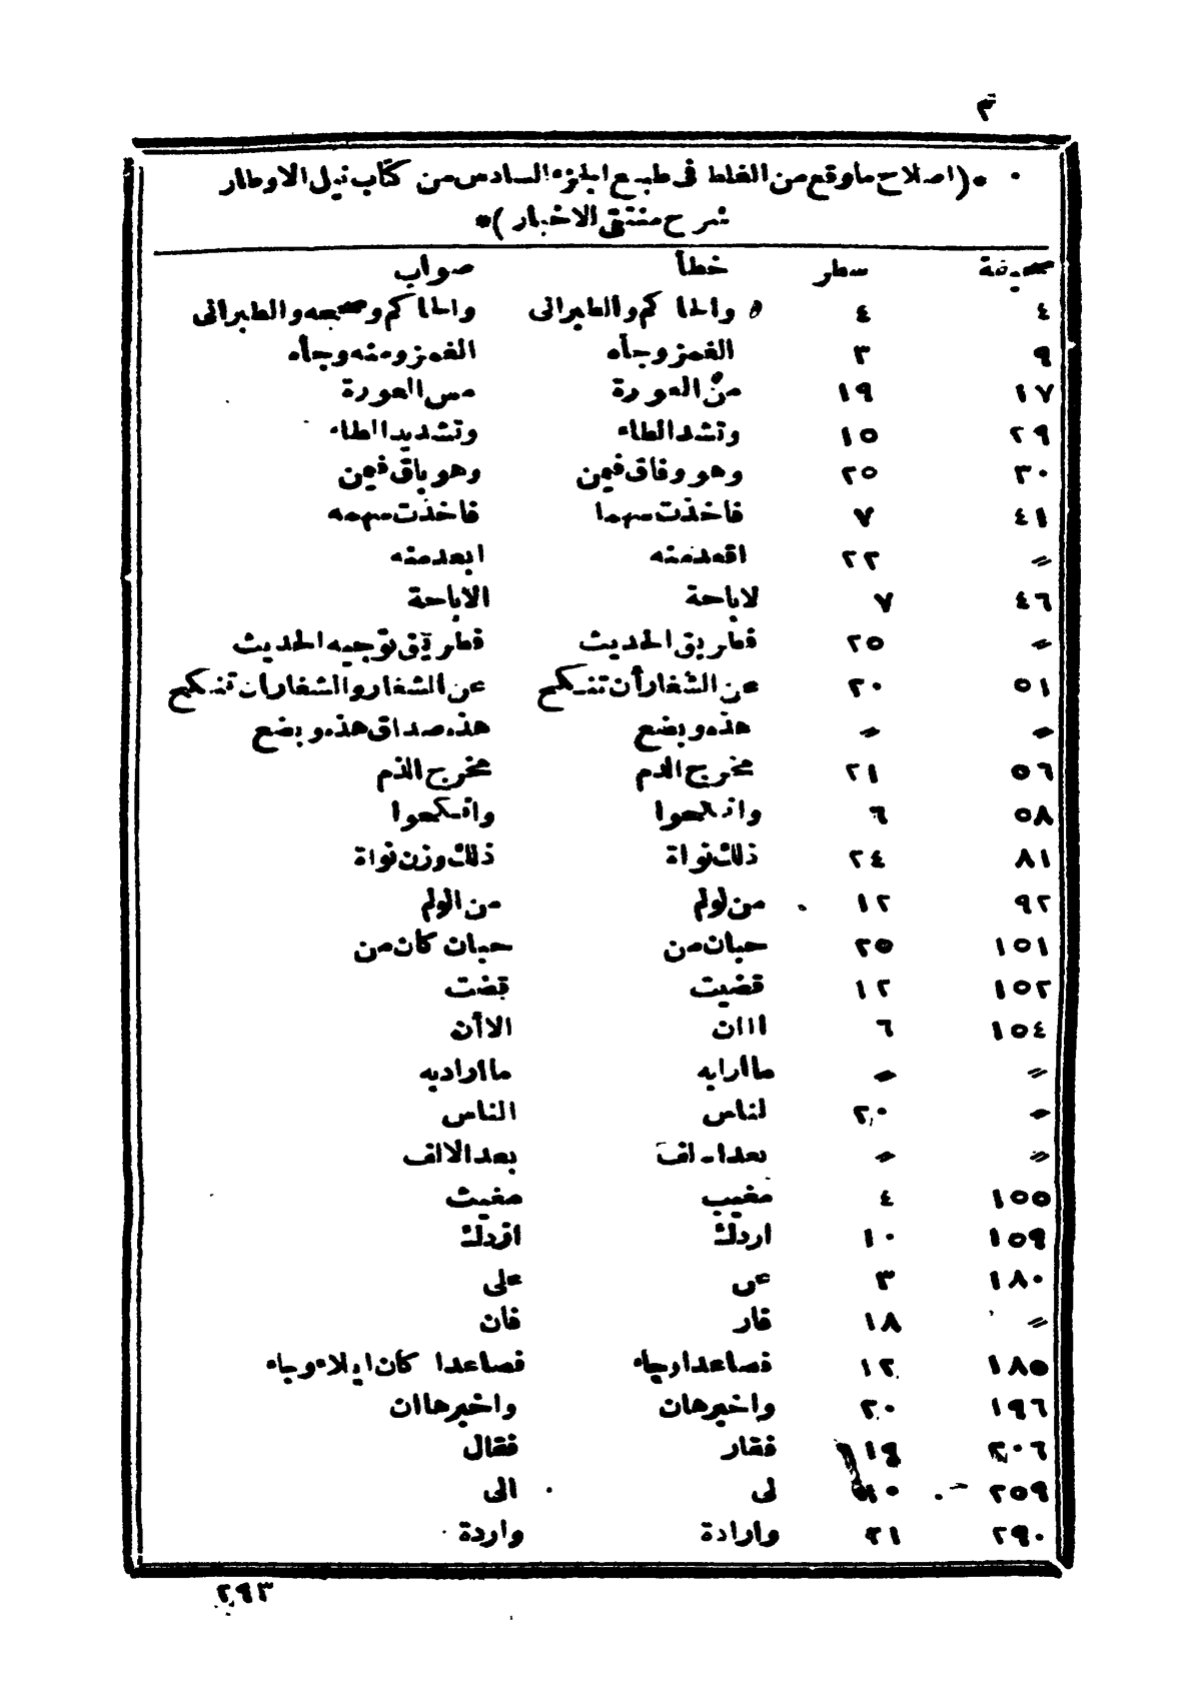 ٣
*(اصلاح ماوقع من الغلط فى طبع الجزء السادس من كتاب نيل الاوطار
شرح منتقى الاخبار)*
صحيفة سطر خطأ صواب
٤ ٤ والحاكم والطبرانى والحاكم وصححه والطبرانى
٩ ٣ الغمز وجأه الغمز ومنه وجأه
١٧ ١٩ من العورة مس العورة
٢٩ ١٥ وتشد الطاء وتشديد الطاء
٣٠ ٢٥ وهو وفاق فيمن وهو باق فيمن
٤١ ٧ فاخذت سهما فاخذت سهمه
〃 ٢٢ اقعد منه ابعد منه
٤٦ ٧ لاباحة الاباحة
〃 ٢٥ فطريق الحديث فطريق توجيه الحديث
٥١ ٢٠ عن الشغار أن تنكح عن الشغار والشغار ان تنكح
〃 〃 هذه وبضع هذه صداق هذه وبضع
٥٦ ٢١ مخرج الدم مخرج الذم
٥٨ ٦ وانكحوا وانكحوا
٨١ ٢٤ ذلك نواة ذلك وزن نواة
٩٢ ١٢ من لولم من الولم
١٥١ ٢٥ حبان من حبان كان من
١٥٢ ١٢ قضيت قبضت
١٥٤ ٦ ااان الاأن
〃 〃 ماارابه مااراديه
〃 ٢٠ لناس الناس
〃 〃 بعدا الف بعد الالف
١٥٥ ٤ مغيب مغيث
١٥٩ ١٠ اردلك افردلك
١٨٠ ٣ عى على
〃 ١٨ فار فان
١٨٥ ١٢ فصاعدا وجاء فصاعدا كان ايلاء وجاء
١٩٦ ٢٠ واخبرهان واخبرهاان
٢٠٦ ١٩ فقار فقال
٢٥٩ ١٠ لى الى
٢٩٠ ٢١ وارادة واردة
٢٩٣